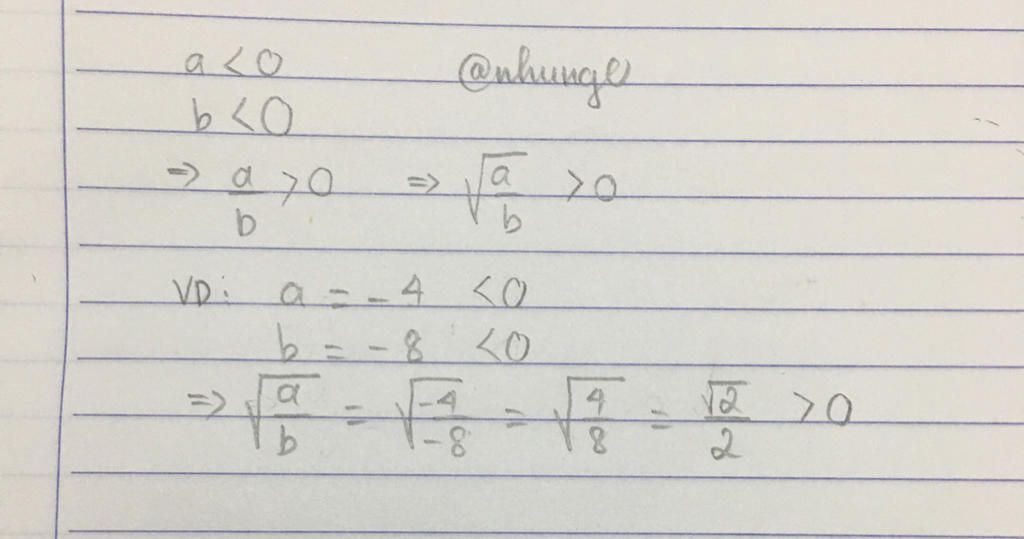 a < 0 @nhunge
b < 0
⇒ a/b > 0 ⇒ √(a/b) > 0
VD: a = -4 < 0
b = -8 < 0
⇒ √(a/b) = √(-4/-8) = √(4/8) = √2/2 > 0